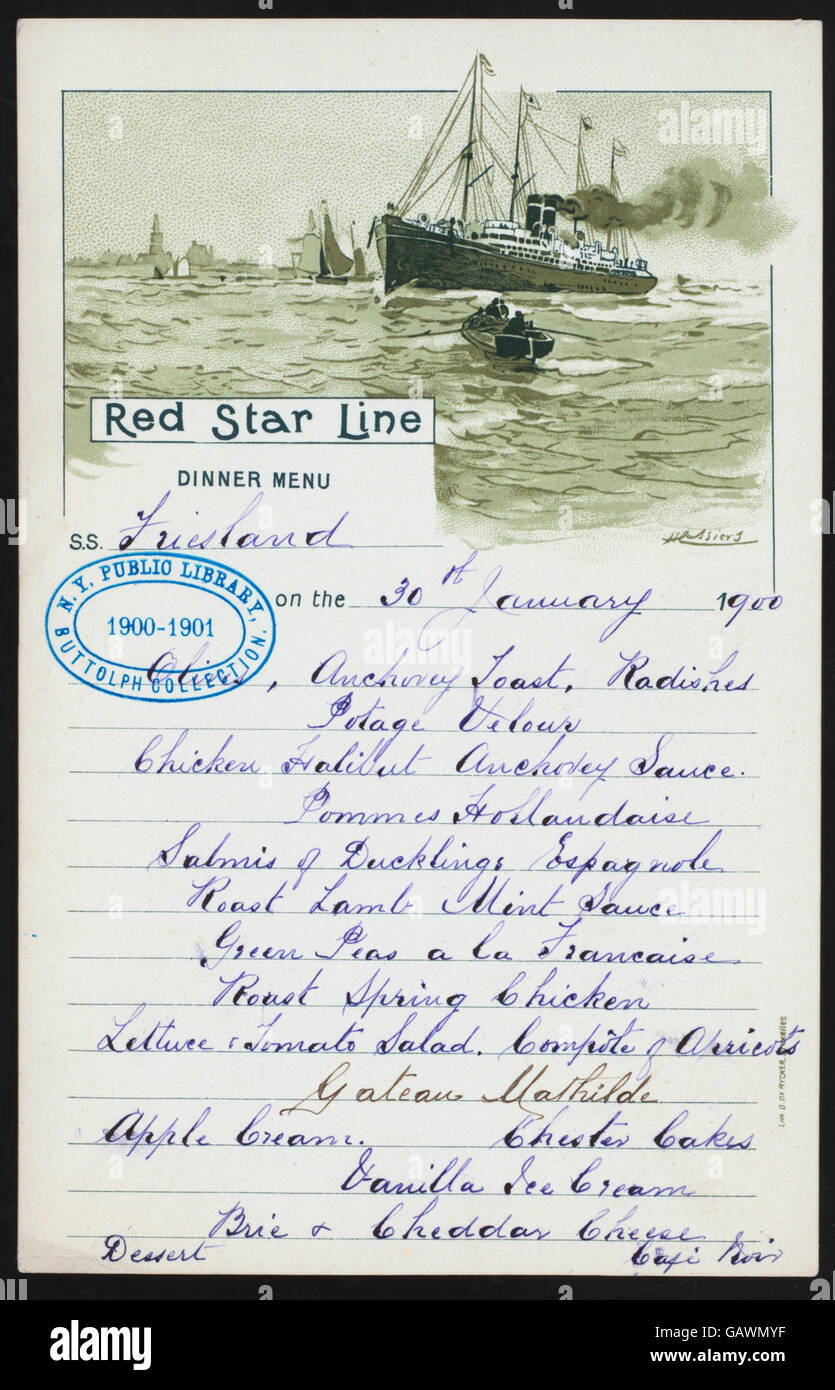 Red Star Line
DINNER MENU
S.S. Friesland
N.Y. PUBLIC LIBRARY,
1900-1901
BUTTOLPH COLLECTION.
on the 30th January 1900
Olives, Anchovey Toast, Radishes
Potage Velour
Chicken Halibut Anchovey Sauce.
Pommes Hollandaise
Salmis of Ducklings Espagnole
Roast Lamb Mint Sauce
Green Peas a la Francaise
Roast Spring Chicken
Lettuce & Tomato Salad. Compôte of Apricots
Gateau Mathilde
Apple Cream. Chester Cakes
Vanilla Ice Cream
Brie & Cheddar Cheese
Dessert Café Noir
LITH. O. DE RYCKER,
alamy
alamy
alamy
alamy
alamy
Image ID: GAWMYF
www.alamy.com